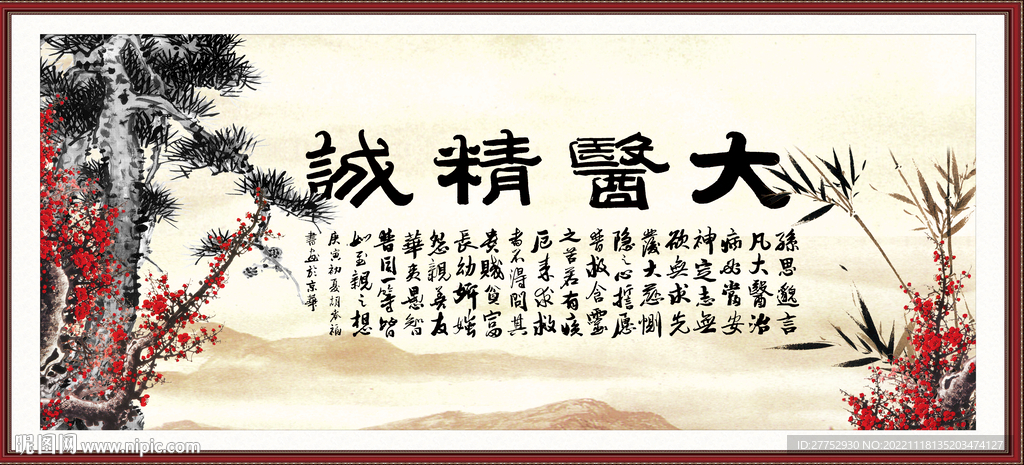 大醫精誠
孫思邈言
凡大醫治
病必當安
神定志無
欲無求先
發大慈惻
隐之心誓愿
普救含靈
之苦若有疾
厄来求救
者不得問其
貴賤貧富
長幼妍媸
怨親善友
華夷愚智
普同一等皆
如至親之想
庚寅初夏胡
書於京華
昵图网 www.nipic.com
ID:27752930 NO:20221118135203474127